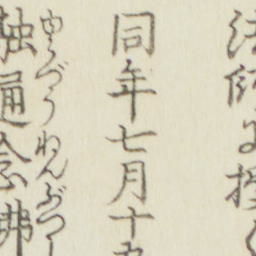 法師に授
同年七月十五
融通念佛
ゆうづうねんぶつ